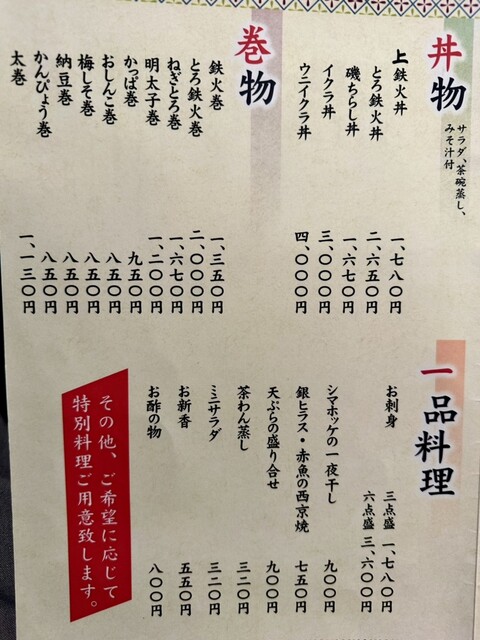 丼物
サラダ、茶碗蒸し、
みそ汁付
上鉄火丼 一、七八〇円
とろ鉄火丼 二、六五〇円
磯ちらし丼 一、六七〇円
イクラ丼 三、〇〇〇円
ウニイクラ丼 四、〇〇〇円
巻物
鉄火巻 一、三五〇円
とろ鉄火巻 二、〇〇〇円
ねぎとろ巻 一、六七〇円
明太子巻 一、二〇〇円
かっぱ巻 九五〇円
おしんこ巻 八五〇円
梅しそ巻 八五〇円
納豆巻 八五〇円
かんぴょう巻 八五〇円
太巻 一、一三〇円
一品料理
お刺身 三点盛 一、七八〇円
六点盛 三、六〇〇円
シマホッケの一夜干し 九〇〇円
銀ヒラス・赤魚の西京焼 七五〇円
天ぷらの盛り合せ 九〇〇円
茶わん蒸し 三二〇円
ミニサラダ 三二〇円
お新香 五五〇円
お酢の物 八〇〇円
その他、ご希望に応じて
特別料理ご用意致します。